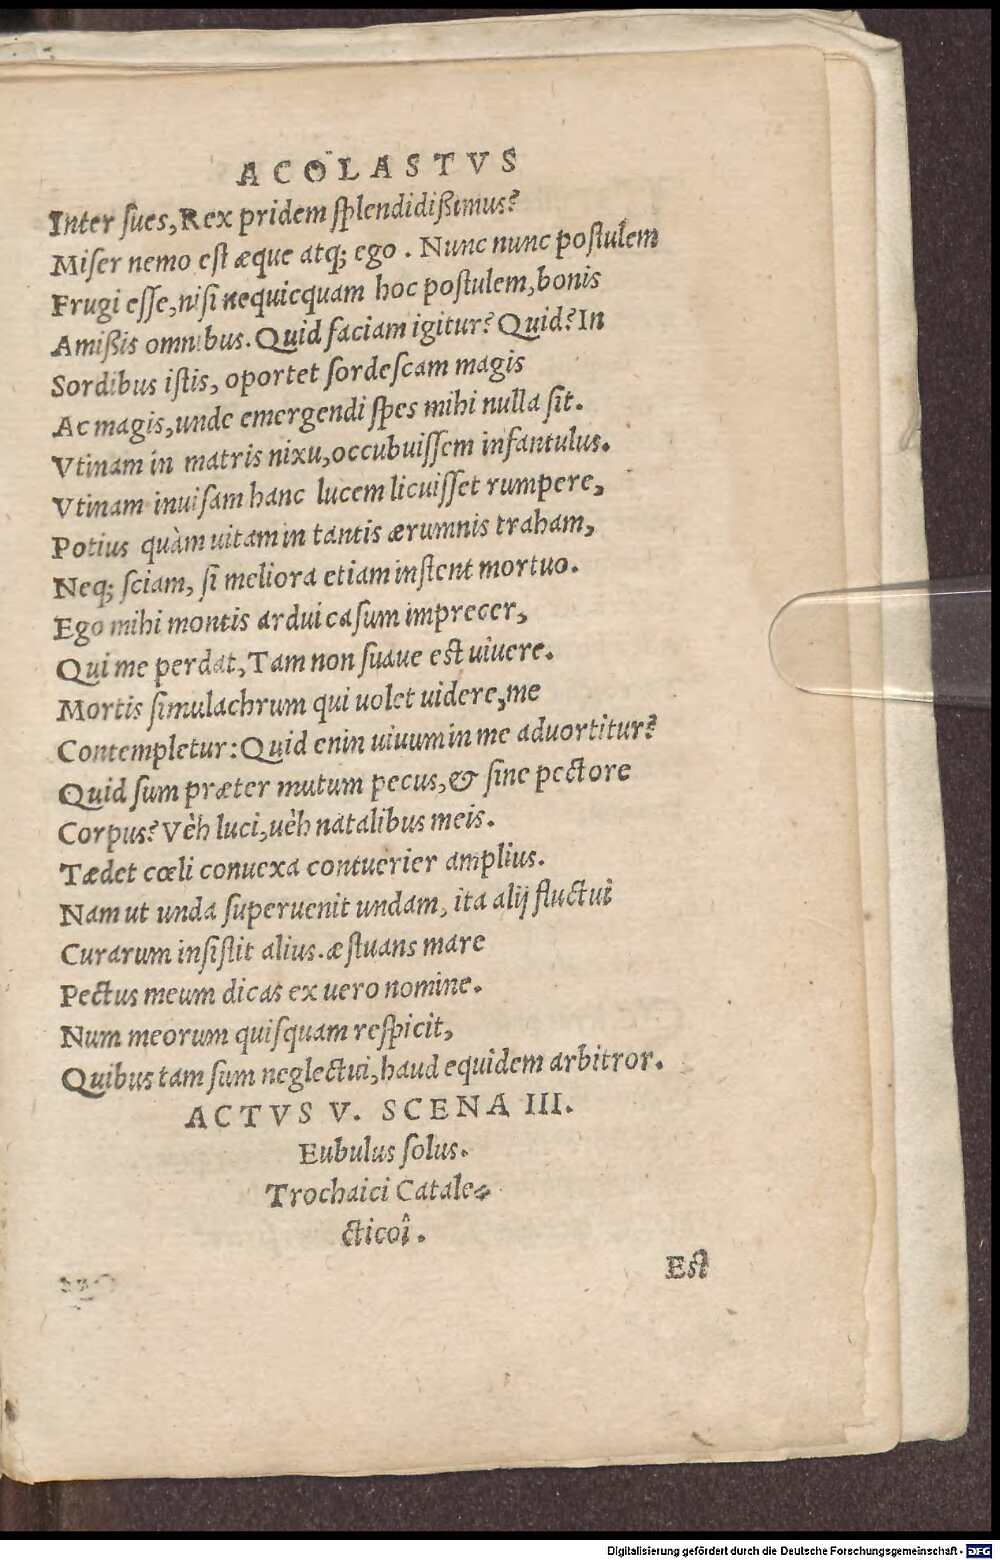 ACOLASTVS
Inter ſues, Rex pridem ſplendidißimus?
Miſer nemo eſt æque atq; ego. Nunc nunc poſtulem
Frugi eſſe, niſi nequicquam hoc poſtulem, bonis
Amißis omnibus. Quid faciam igitur? Quid? In
Sordibus iſtis, oportet ſordeſcam magis
Ac magis, unde emergendi ſpes mihi nulla ſit.
Vtinam in matris nixu, occubuiſſem infantulus.
Vtinam inuiſam hanc lucem licuiſſet rumpere,
Potius quàm uitam in tantis ærumnis traham,
Neq; ſciam, ſi meliora etiam inſtent mortuo.
Ego mihi montis ardui caſum imprecer,
Qui me perdat, Tam non ſuaue eſt uiuere.
Mortis ſimulachrum qui uolet uidere, me
Contempletur: Quid enin uiuum in me aduortitur?
Quid ſum præter mutum pecus, & ſine pectore
Corpus? Vèh luci, uèh natalibus meis.
Tædet cœli conuexa contuerier amplius.
Nam ut unda ſuperuenit undam, ita alij fluctui
Curarum inſiſtit alius. æſtuans mare
Pectus meum dicas ex uero nomine.
Num meorum quiſquam reſpicit,
Quibus tam ſum neglectui, haud equidem arbitror.
ACTVS V. SCENA III.
Eubulus ſolus.
Trochaici Catale-
cticoî.
Eſt
Digitalisierung gefördert durch die Deutsche Forschungsgemeinschaft - DFG